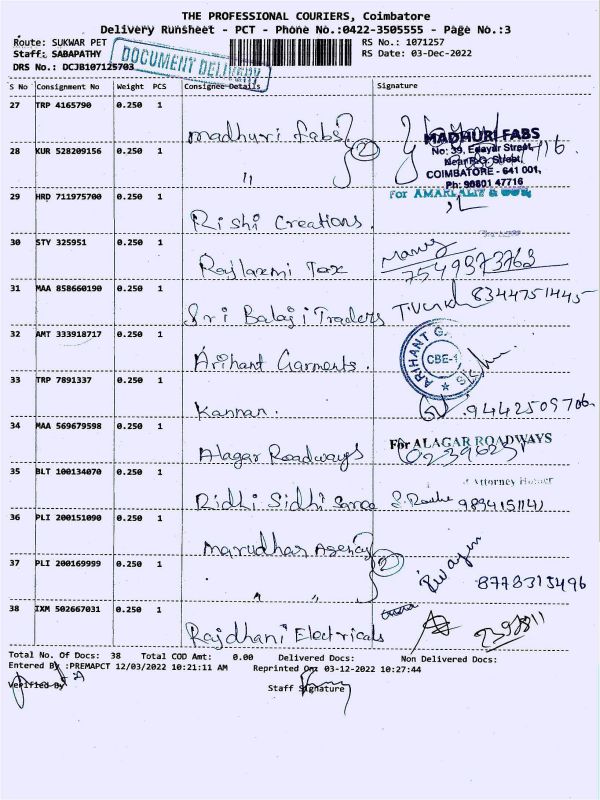 THE PROFESSIONAL COURIERS, Coimbatore
Delivery Runsheet - PCT - Phone No.:0422-3505555 - Page No.:3
Route: SUKWAR PET RS No.: 1071257
Staff: SABAPATHY RS Date: 03-Dec-2022
DRS No.: DCJB107125703
DOCUMENT DELIVERY
S No Consignment No Weight PCS Consignee Details Signature
27 TRP 4165790 0.250 1 Madhuri fabs
MADHURI FABS
No: 39, Edayar Street,
COIMBATORE - 641 001,
Ph: 98801 47716
28 KUR 528209156 0.250 1 " 2
29 HRD 711975700 0.250 1 Rishi Creations.
For
30 STY 325951 0.250 1 Rajlaxmi Tax 7549973763
31 MAA 858660190 0.250 1 Sri Balaji Traders 8344751445
32 AMT 333918717 0.250 1 Arihant Garments.
ARIHANT CBE-1
33 TRP 7891337 0.250 1 Kannan. 9442509706
34 MAA 569679598 0.250 1 Alagar Roadways
For ALAGAR ROADWAYS
35 BLT 100134070 0.250 1 Ridhi Sidhi 9894151141
Attorney Holder
36 PLI 200151090 0.250 1 Marudhar Agency
37 PLI 200169999 0.250 1 " " 2 8778315496
38 IXM 502667031 0.250 1 Rajdhani Electricals
Total No. Of Docs: 38 Total COD Amt: 0.00 Delivered Docs: Non Delivered Docs:
Entered By :PREMAPCT 12/03/2022 10:21:11 AM Reprinted On: 03-12-2022 10:27:44
Verified By Staff Signature